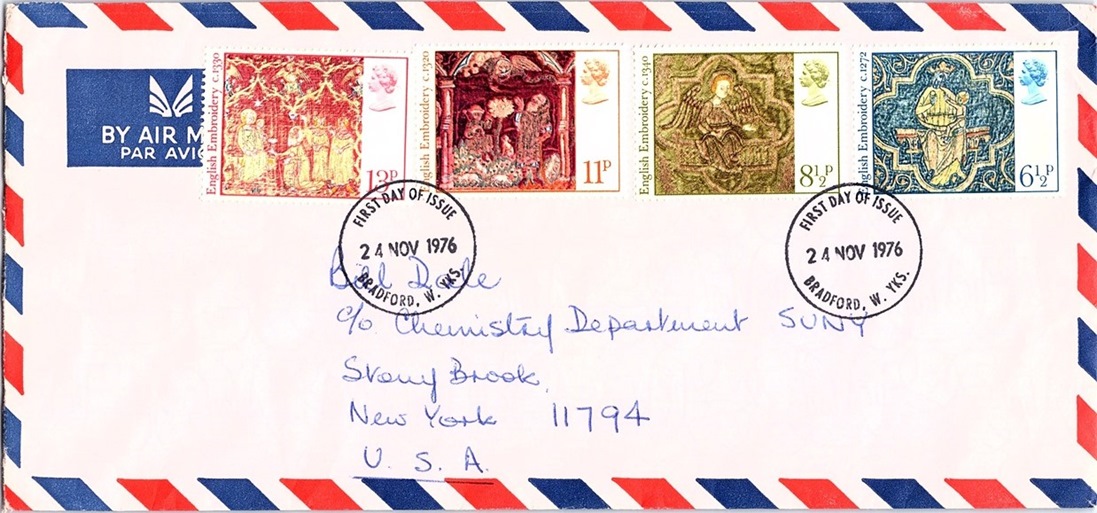 BY AIR M
PAR AVIO
English Embroidery c.1330
13P
English Embroidery c.1320
11P
English Embroidery c.1340
8½P
English Embroidery c.1272
6½P
FIRST DAY OF ISSUE
24 NOV 1976
BRADFORD, W. YKS.
FIRST DAY OF ISSUE
24 NOV 1976
BRADFORD, W. YKS.
Bill Dale
c/o Chemistry Department SUNY
Stony Brook,
New York 11794
U. S. A.